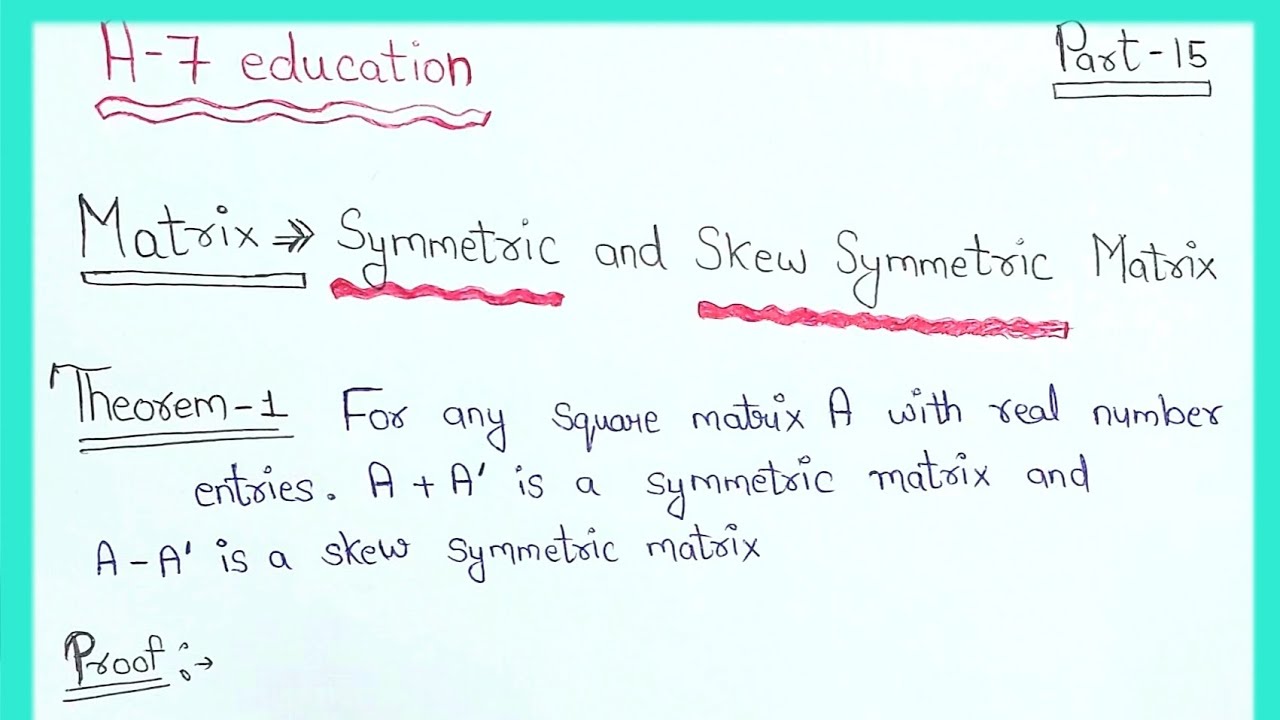 H-7 education
Part-15
Matrix ⇒ Symmetric and Skew Symmetric Matrix
Theorem-1 For any square matrix A with real number
entries. A + A' is a symmetric matrix and
A - A' is a skew symmetric matrix
Proof :→